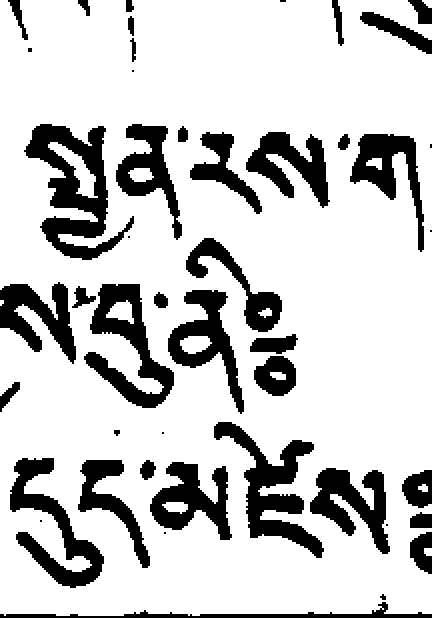 སྤྱན་རས་ག
ས་བུ་ནི༔
དུད་མཛེས༔